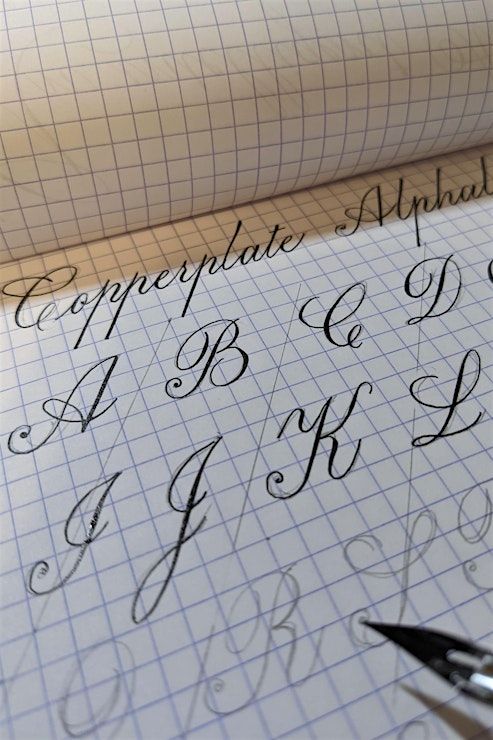 Copperplate Alphab
A B C D
I J K L
Q R S